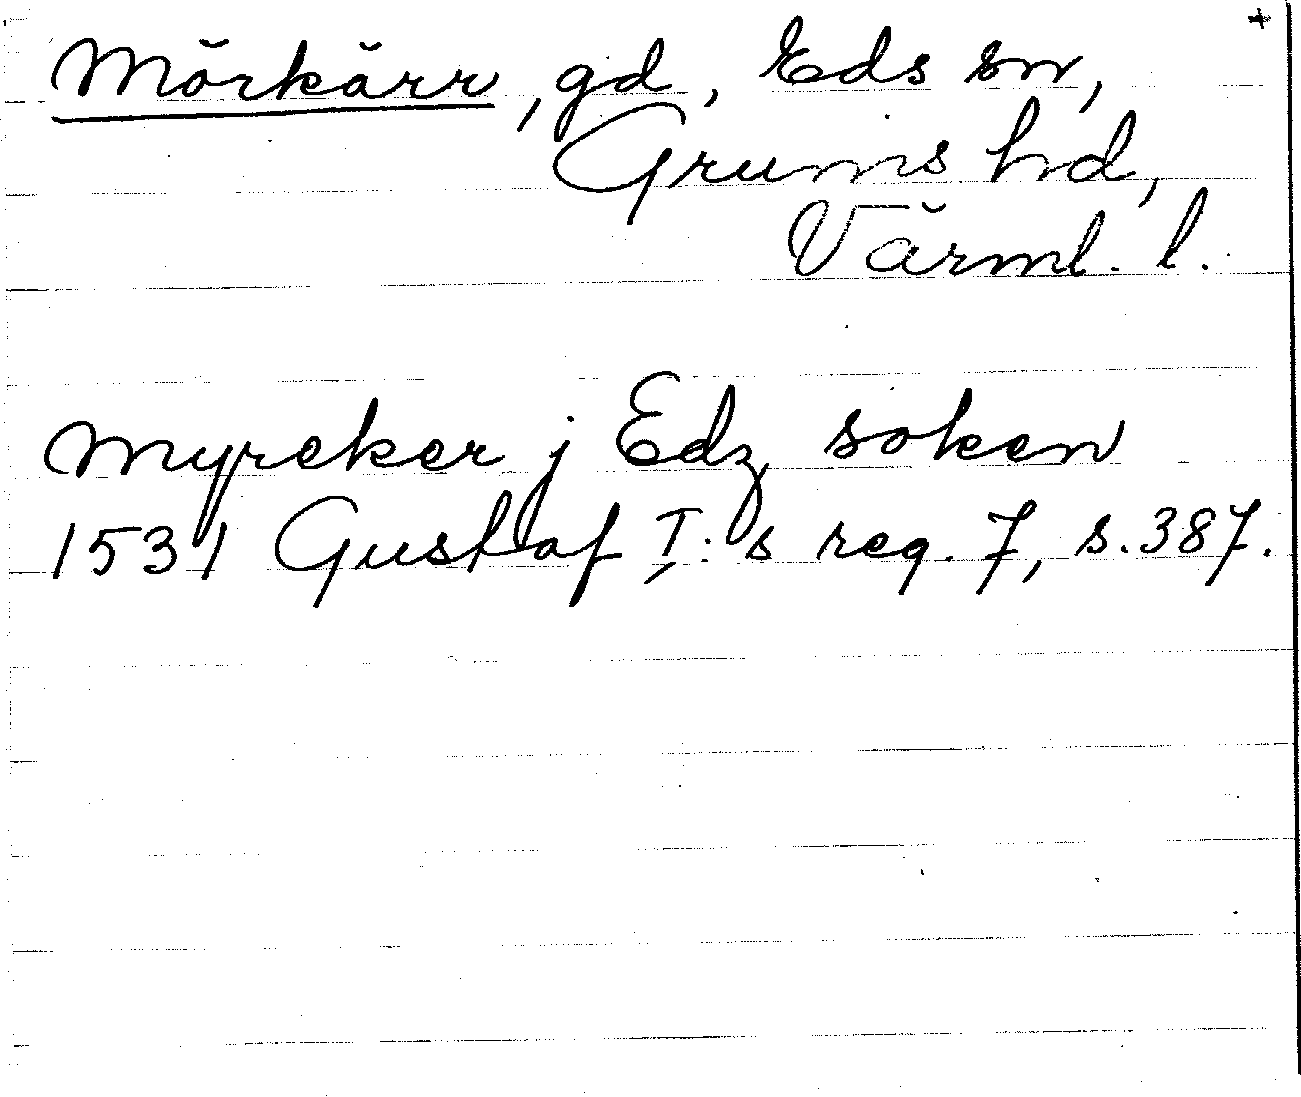 Mörkärr, gd, Eds sn,
Grums hd,
Värml. l.
Myreker j Edz soken
1531 Gustaf I:s reg. 7, s. 387.